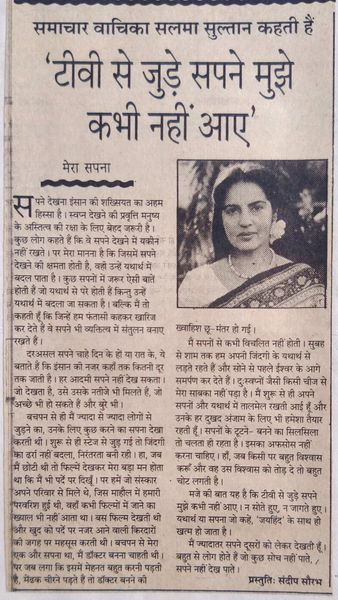 समाचार वाचिका सलमा सुल्तान कहती हैं
‘टीवी से जुड़े सपने मुझे
कभी नहीं आए’
मेरा सपना
सपने देखना इंसान की शख्सियत का अहम
हिस्सा है। स्वप्न देखने की प्रवृत्ति मनुष्य
के अस्तित्व की रक्षा के लिए बेहद जरूरी है।
कुछ लोग कहते हैं कि वे सपने देखने में यकीन
नहीं रखते। पर मेरा मानना है कि जिसमें सपने
देखने की क्षमता होती है, वही उन्हें यथार्थ में
बदल पाता है। हां सपनों में जरूर ऐसी बातें
होती हैं जो यथार्थ से परे होती हैं किन्तु उन्हें
यथार्थ में बदला जा सकता है। बल्कि मैं तो
कहती हूँ कि जिन्हें हम फंतासी कहकर खारिज
कर देते हैं वे सपने भी व्यक्तित्व में संतुलन बनाए
रखते हैं।
दरअसल सपने चाहे दिन के हों या रात के, ये
बताते हैं कि इंसान की नजर कहाँ तक कितनी दूर
तक जाती है। हर आदमी सपने नहीं देख सकता।
जो देखता है, उसे उसके नतीजे भी मिलते हैं, जो
अच्छे भी हो सकते हैं और बुरे भी।
बचपन से ही मैं ज्यादा से ज्यादा लोगों से
जुड़ने का, उनके लिए कुछ करने का सपना देखा
करती थी। शुरू से ही स्टेज से जुड़ गई तो जिंदगी
का ढर्रा नहीं बदला, निरंतरता बनी रही। हा, जब
मैं छोटी थी तो फिल्में देखकर मेरा बड़ा मन होता
था कि मैं भी पर्दे पर दिखूँ। पर हमें जो संस्कार
अपने परिवार से मिले थे, जिस माहौल में हमारी
परवरिश हुई थी, वहाँ कभी फिल्मों में जाने का
ख्याल भी नहीं आता था। बस फिल्म देखती थी
और खुद को पर्दे पर नजर आने वाली किरदारों
की जगह पर महसूस करती थी। बचपन से मेरा
एक और सपना था, मैं डॉक्टर बनना चाहती थी।
पर जब लगा कि इसमें मेहनत बहुत करनी पड़ती
है, मेंढक चीरने पड़ते हैं तो डॉक्टर बनने की
ख्वाहिश छू-मंतर हो गई।
मैं सपनों से कभी विचलित नहीं होती। सुबह
से शाम तक हम अपनी जिंदगी के यथार्थ से
लड़ते रहते हैं और सोने से पहले ईश्वर के आगे
समर्पण कर देते हैं। दुःस्वप्नों जैसी किसी चीज से
मेरा साबका नहीं पड़ा है। मैं शुरू से ही अपने
सपनों और यथार्थ में तालमेल रखती आई हूँ और
उनके हर दुखद अंजाम के लिए भी हमेशा तैयार
रहती हूँ। सपनों के टूटने- बनने का सिलसिला
तो चलता ही रहता है। इसका अफसोस नहीं
करना चाहिए। हाँ, जब किसी पर बहुत विश्वास
करूँ और वह उस विश्वास को तोड़ दे तो बहुत
चोट लगती है।
मजे की बात यह है कि टीवी से जुड़े सपने
मुझे कभी नहीं आए। न सोते हुए, न जागते हुए।
यथार्थ या सपना जो कहें, ‘जयहिंद’ के साथ ही
खत्म हो जाता है।
मैं ज्यादातर सपने दूसरों को लेकर देखती हूँ।
बहुत से लोग होते हैं जो कुछ सोच नहीं पाते,
सपने नहीं देख पाते।
प्रस्तुति: संदीप सौरभ